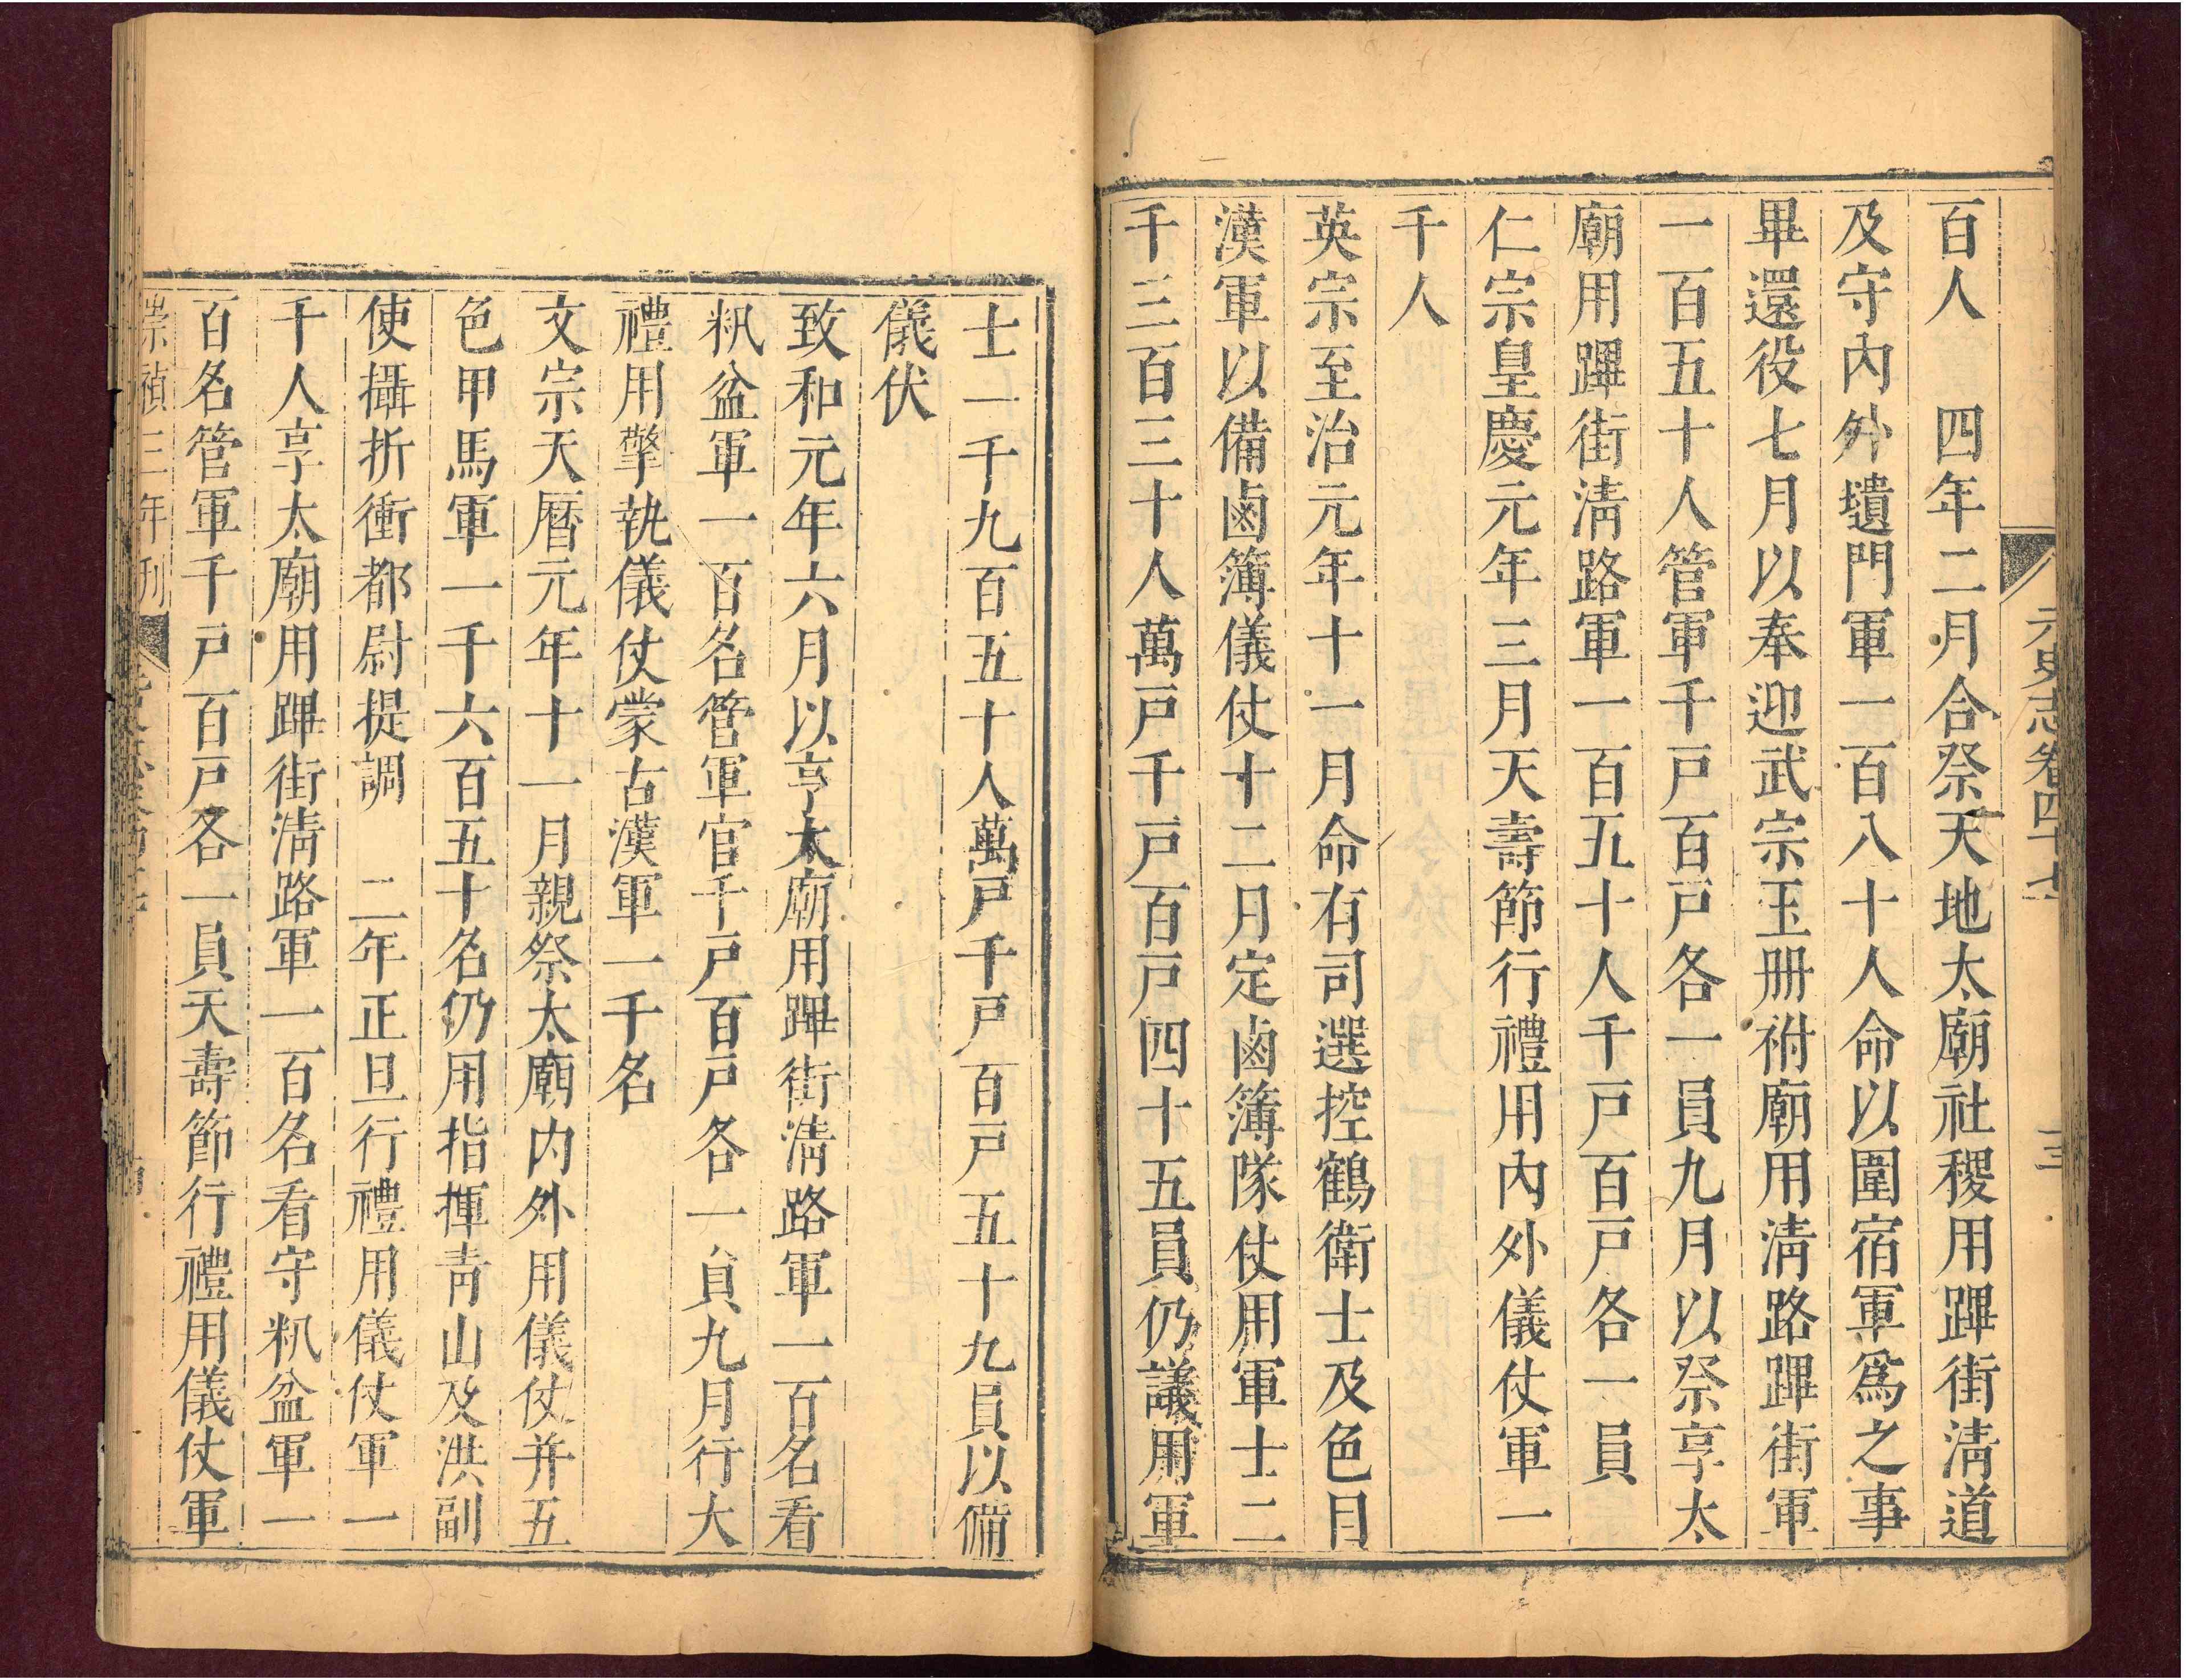 元史志卷四十七
三
百人　四年二月合祭天地太廟社稷用蹕街淸道
及守內外壝門軍一百八十人命以圍宿軍爲之事
畢還役七月以奉迎武宗玉册祔廟用淸路蹕街軍
一百五十人管軍千戸百戸各一員九月以祭享太
廟用蹕街淸路軍一百五十人千戸百戸各一員
仁宗皇慶元年三月天壽節行禮用內外儀仗軍一
千人
英宗至治元年十一月命有司選控鶴衛士及色目
漢軍以備鹵簿儀仗十二月定鹵簿隊仗用軍士二
千三百三十人萬戸千戸百戸四十五員仍議用軍
士一千九百五十人萬戸千戸百戸五十九員以備
儀伏
致和元年六月以享太廟用蹕街淸路軍一百名看
籸盆軍一百名管軍官千戸百戸各一員九月行大
禮用擎執儀仗蒙古漢軍一千名
文宗天曆元年十一月親祭太廟内外用儀仗并五
色甲馬軍一千六百五十名仍用指揮靑山及洪副
使攝折衝都尉提調　二年正旦行禮用儀仗軍一
千人享太廟用蹕街淸路軍一百名看守籸盆軍一
百名管軍千戸百戸各一員天壽節行禮用儀仗軍
崇禎三年刊